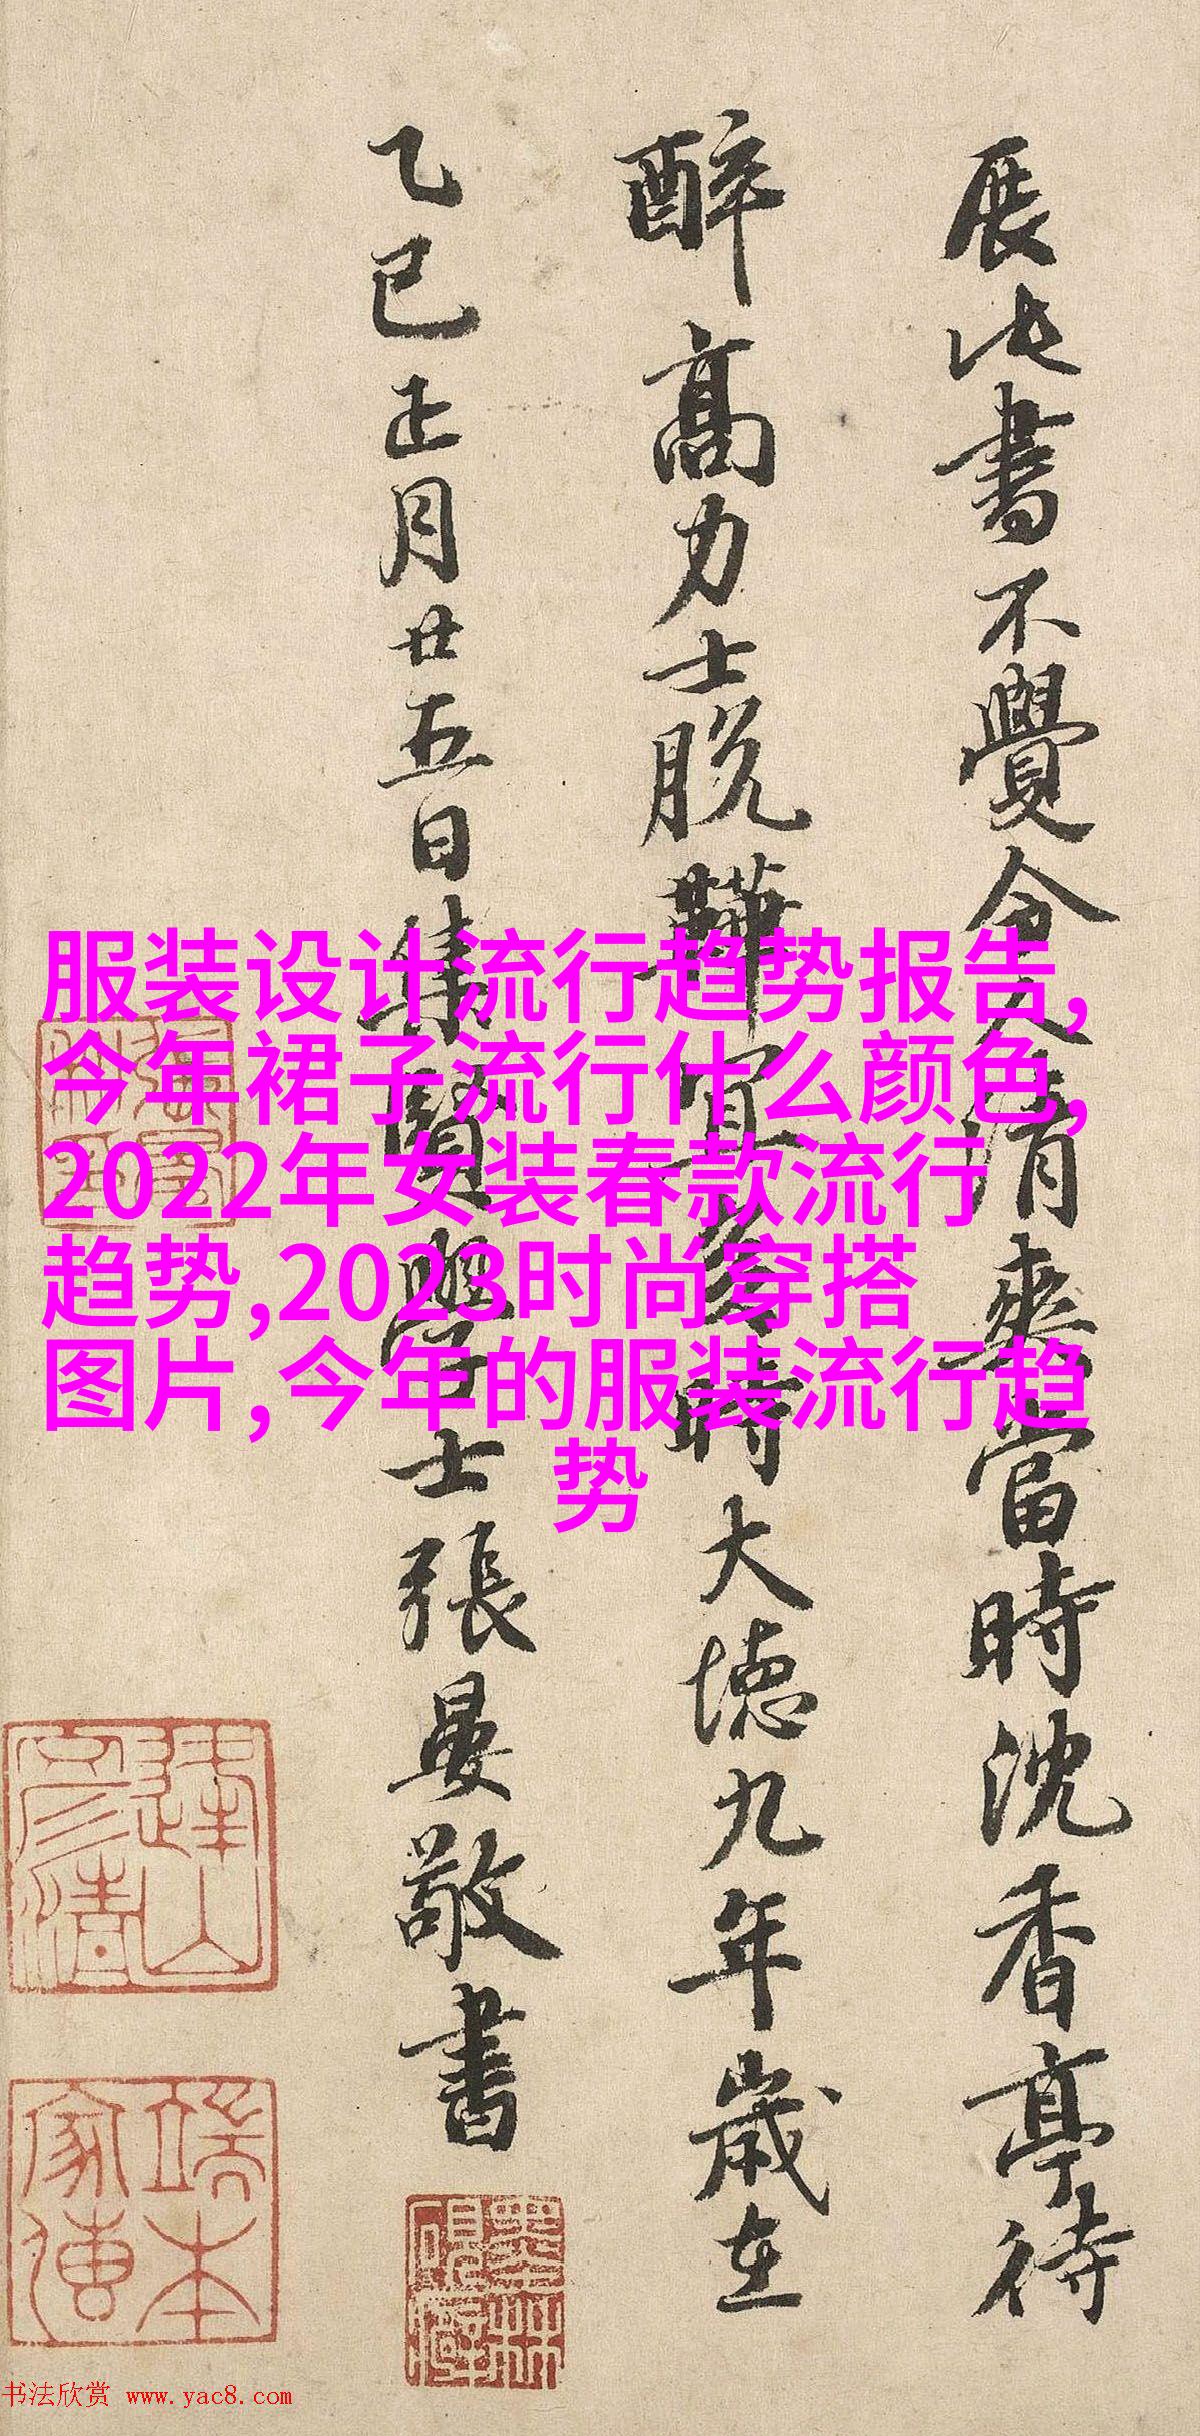 展此書不覺令人清爽當時沈香亭待
醉高力士脫鞾宜矣時大德九年歲在
乙巳正月廿五日集賢學士張晏敬書
服装设计流行趋势报告,
今年裙子流行什么颜色,
2022年女装春款流行
趋势,2023时尚穿搭
图片,今年的服装流行趋
势
书法欣赏 www.yac8.com